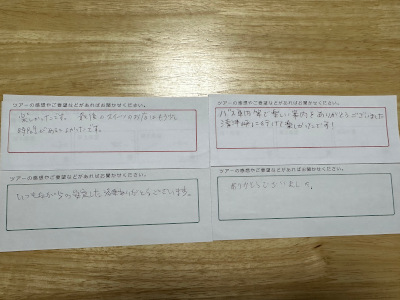 ツアーの感想やご要望などがあればお聞かせください。
楽しかったです。 最後のスパイスのお店はもう少し
時間があるとよかったです。
ツアーの感想やご要望などがあればお聞かせください。
バス車内等で楽しい案内をありがとうございました
に行けて楽しかったです!
ツアーの感想やご要望などがあればお聞かせください。
いつもながらの安定した ありがとうございます。
ツアーの感想やご要望などがあればお聞かせください。
ありがとうございました。